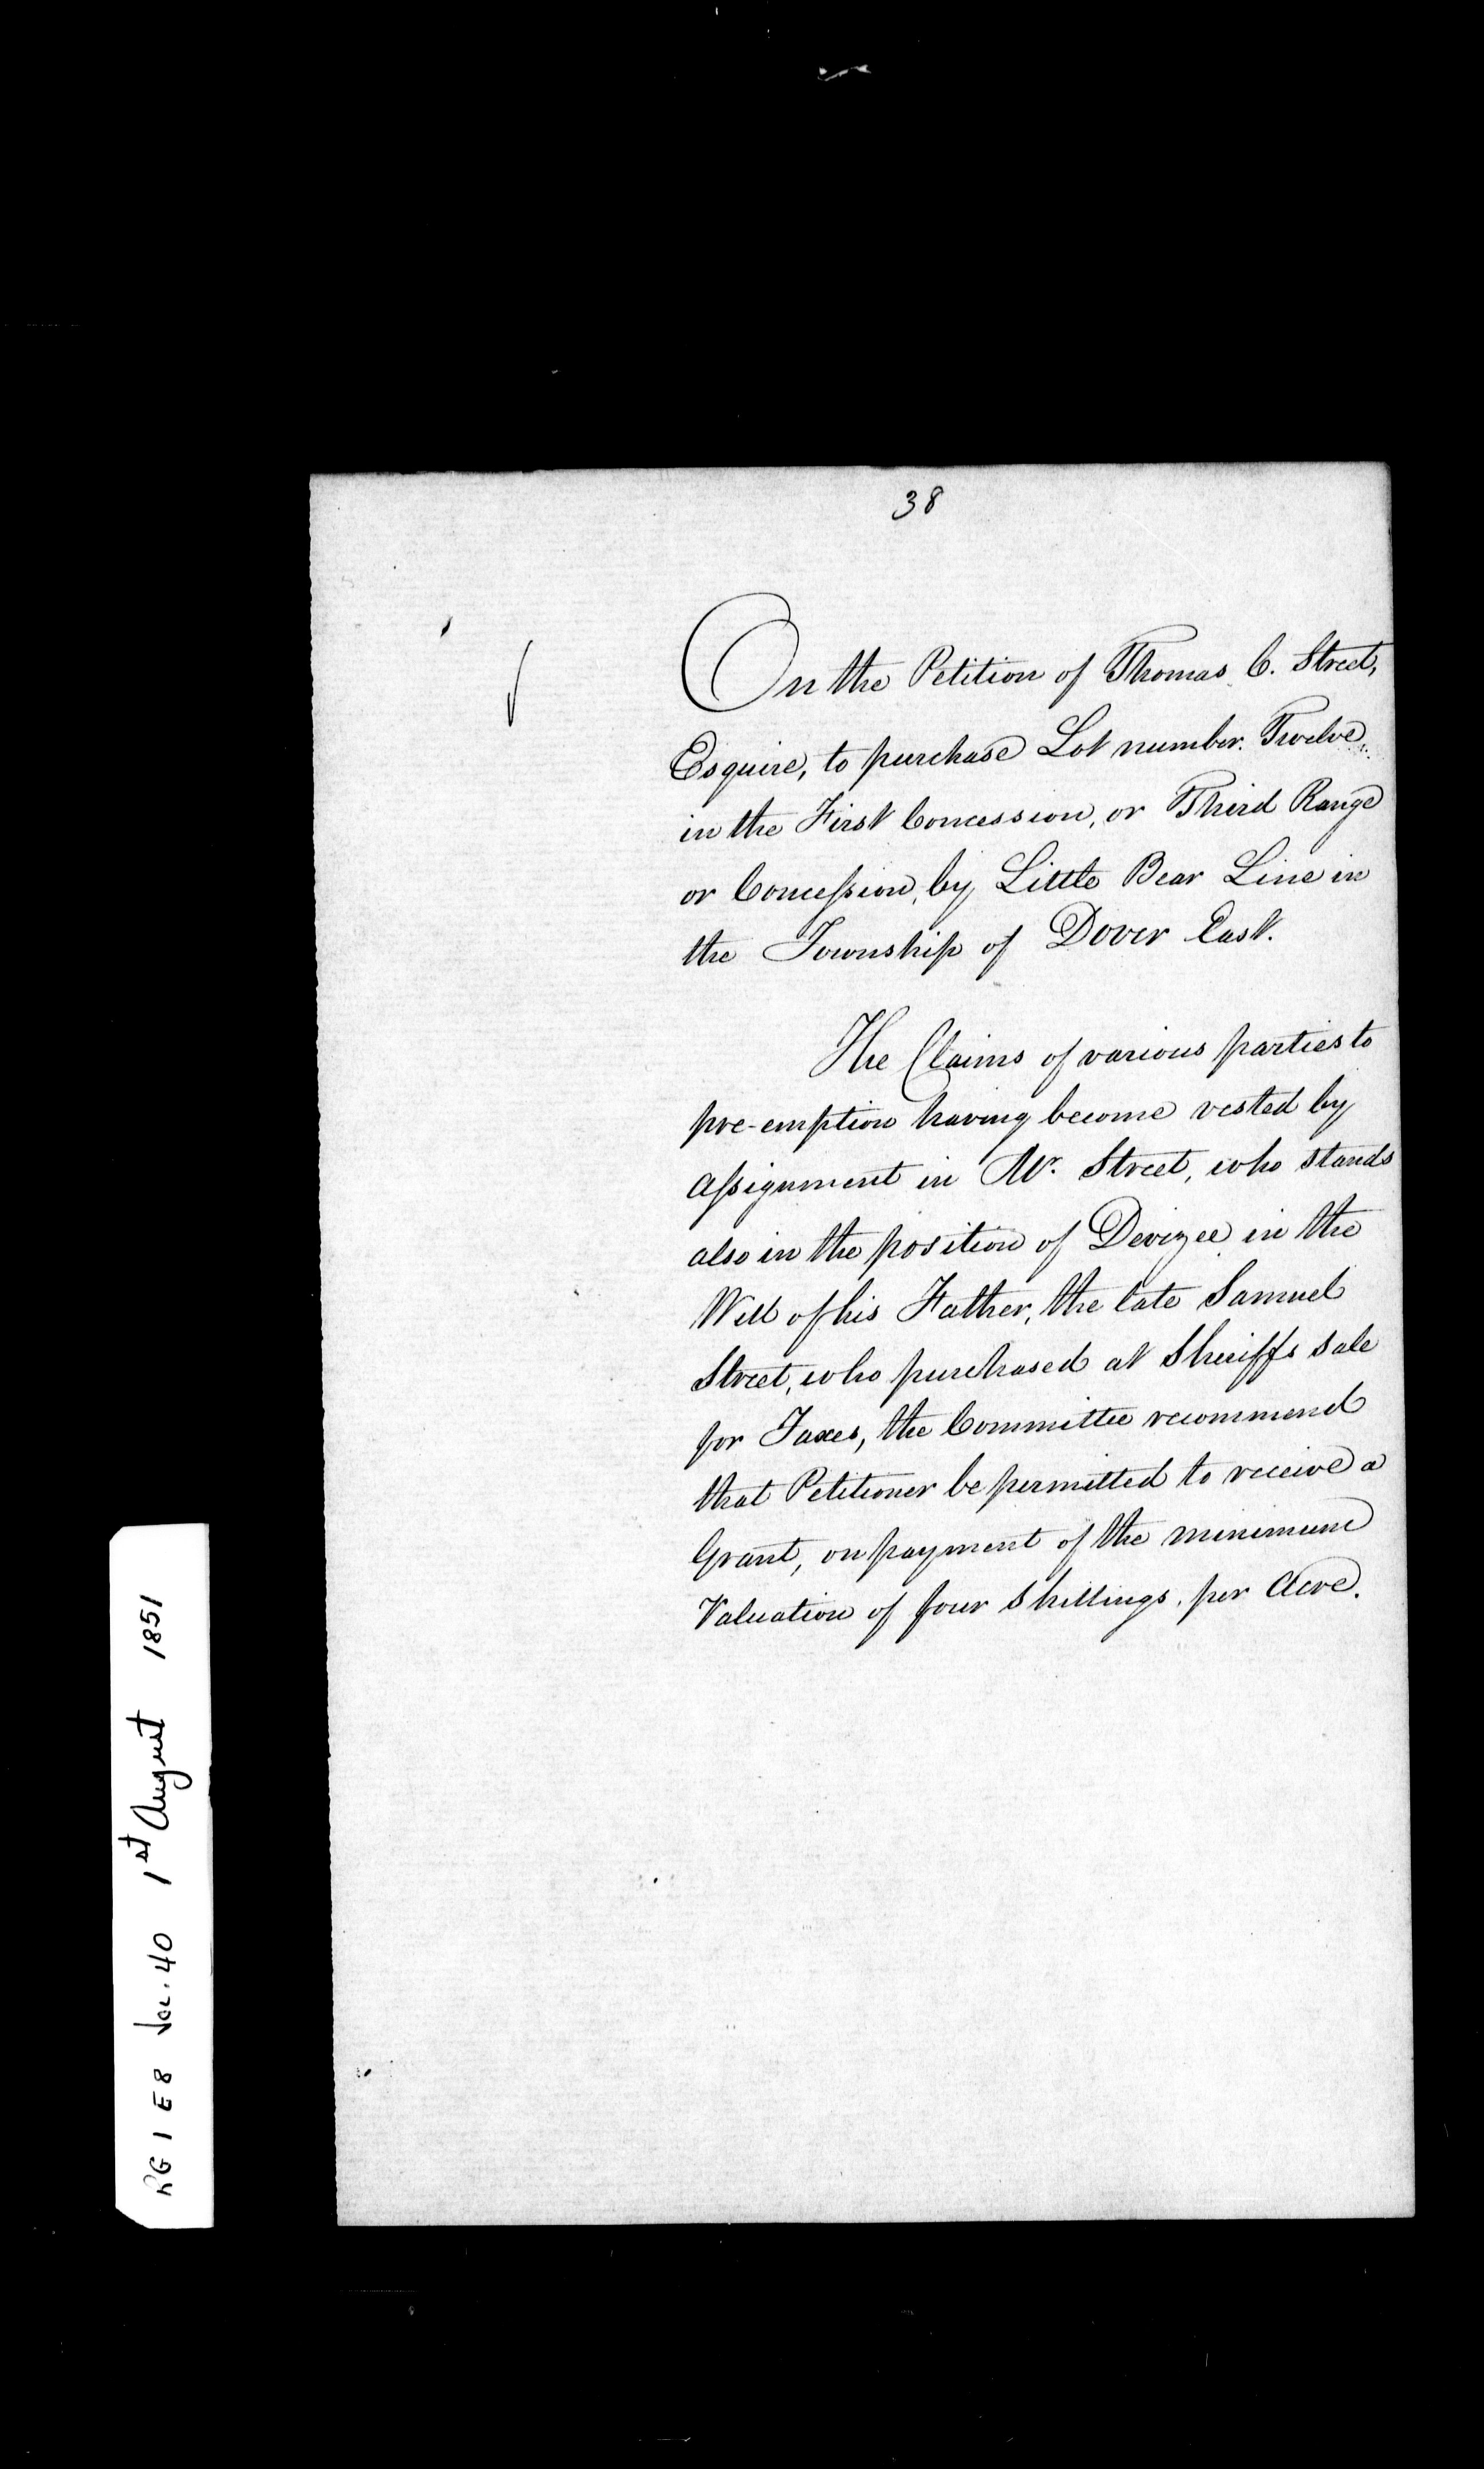 38
On the Petition of Thomas C. Street,
Esquire, to purchase Lot number Twelve
in the First Concession, or Third Range
or Concession, by Little Bear Line in
the Township of Dover East.
The Claims of various parties to
pre-emption having become vested by
assignment in Mr. Street, who stands
also in the position of Devizee in the
Will of his Father, the late Samuel
Street, who purchased at Sheriffs sale
for Taxes, the Committee recommend
that Petitioner be permitted to receive a
Grant, on payment of the minimum
Valuation of four shillings, per Acre.
RG 1 E8 Vol. 40 1st August 1851